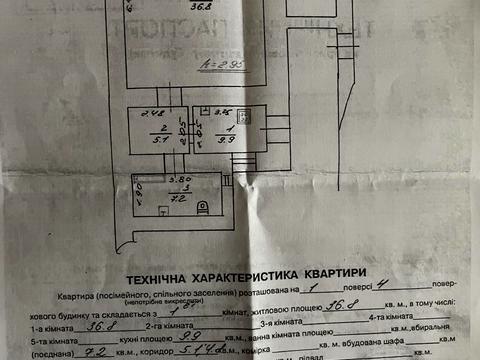 36.8
h=2.95
2.48
3.25
2
5.1
2.05
1
9.9
3.80
1.90
3
7.2
II
ТЕХНІЧНА ХАРАКТЕРИСТИКА КВАРТИРИ
Квартира (посімейного, спільного заселення) розташована на 1 поверсі 4 повер-
(непотрібне викреслити)
хового будинку та складається з 1 кімнат, житловою площею 36.8 кв. м., в тому числі:
1-а кімната 36.8 2-га кімната 3-я кімната 4-та кімната
5-та кімната кухні площею 9.9 кв. м., ванна кімната площею кв. м., вбиральня
(поєднана) 7.2 кв. м., коридор 5.1 кв. м., комірка кв. м., вбудована шафа
кв. м., підвал